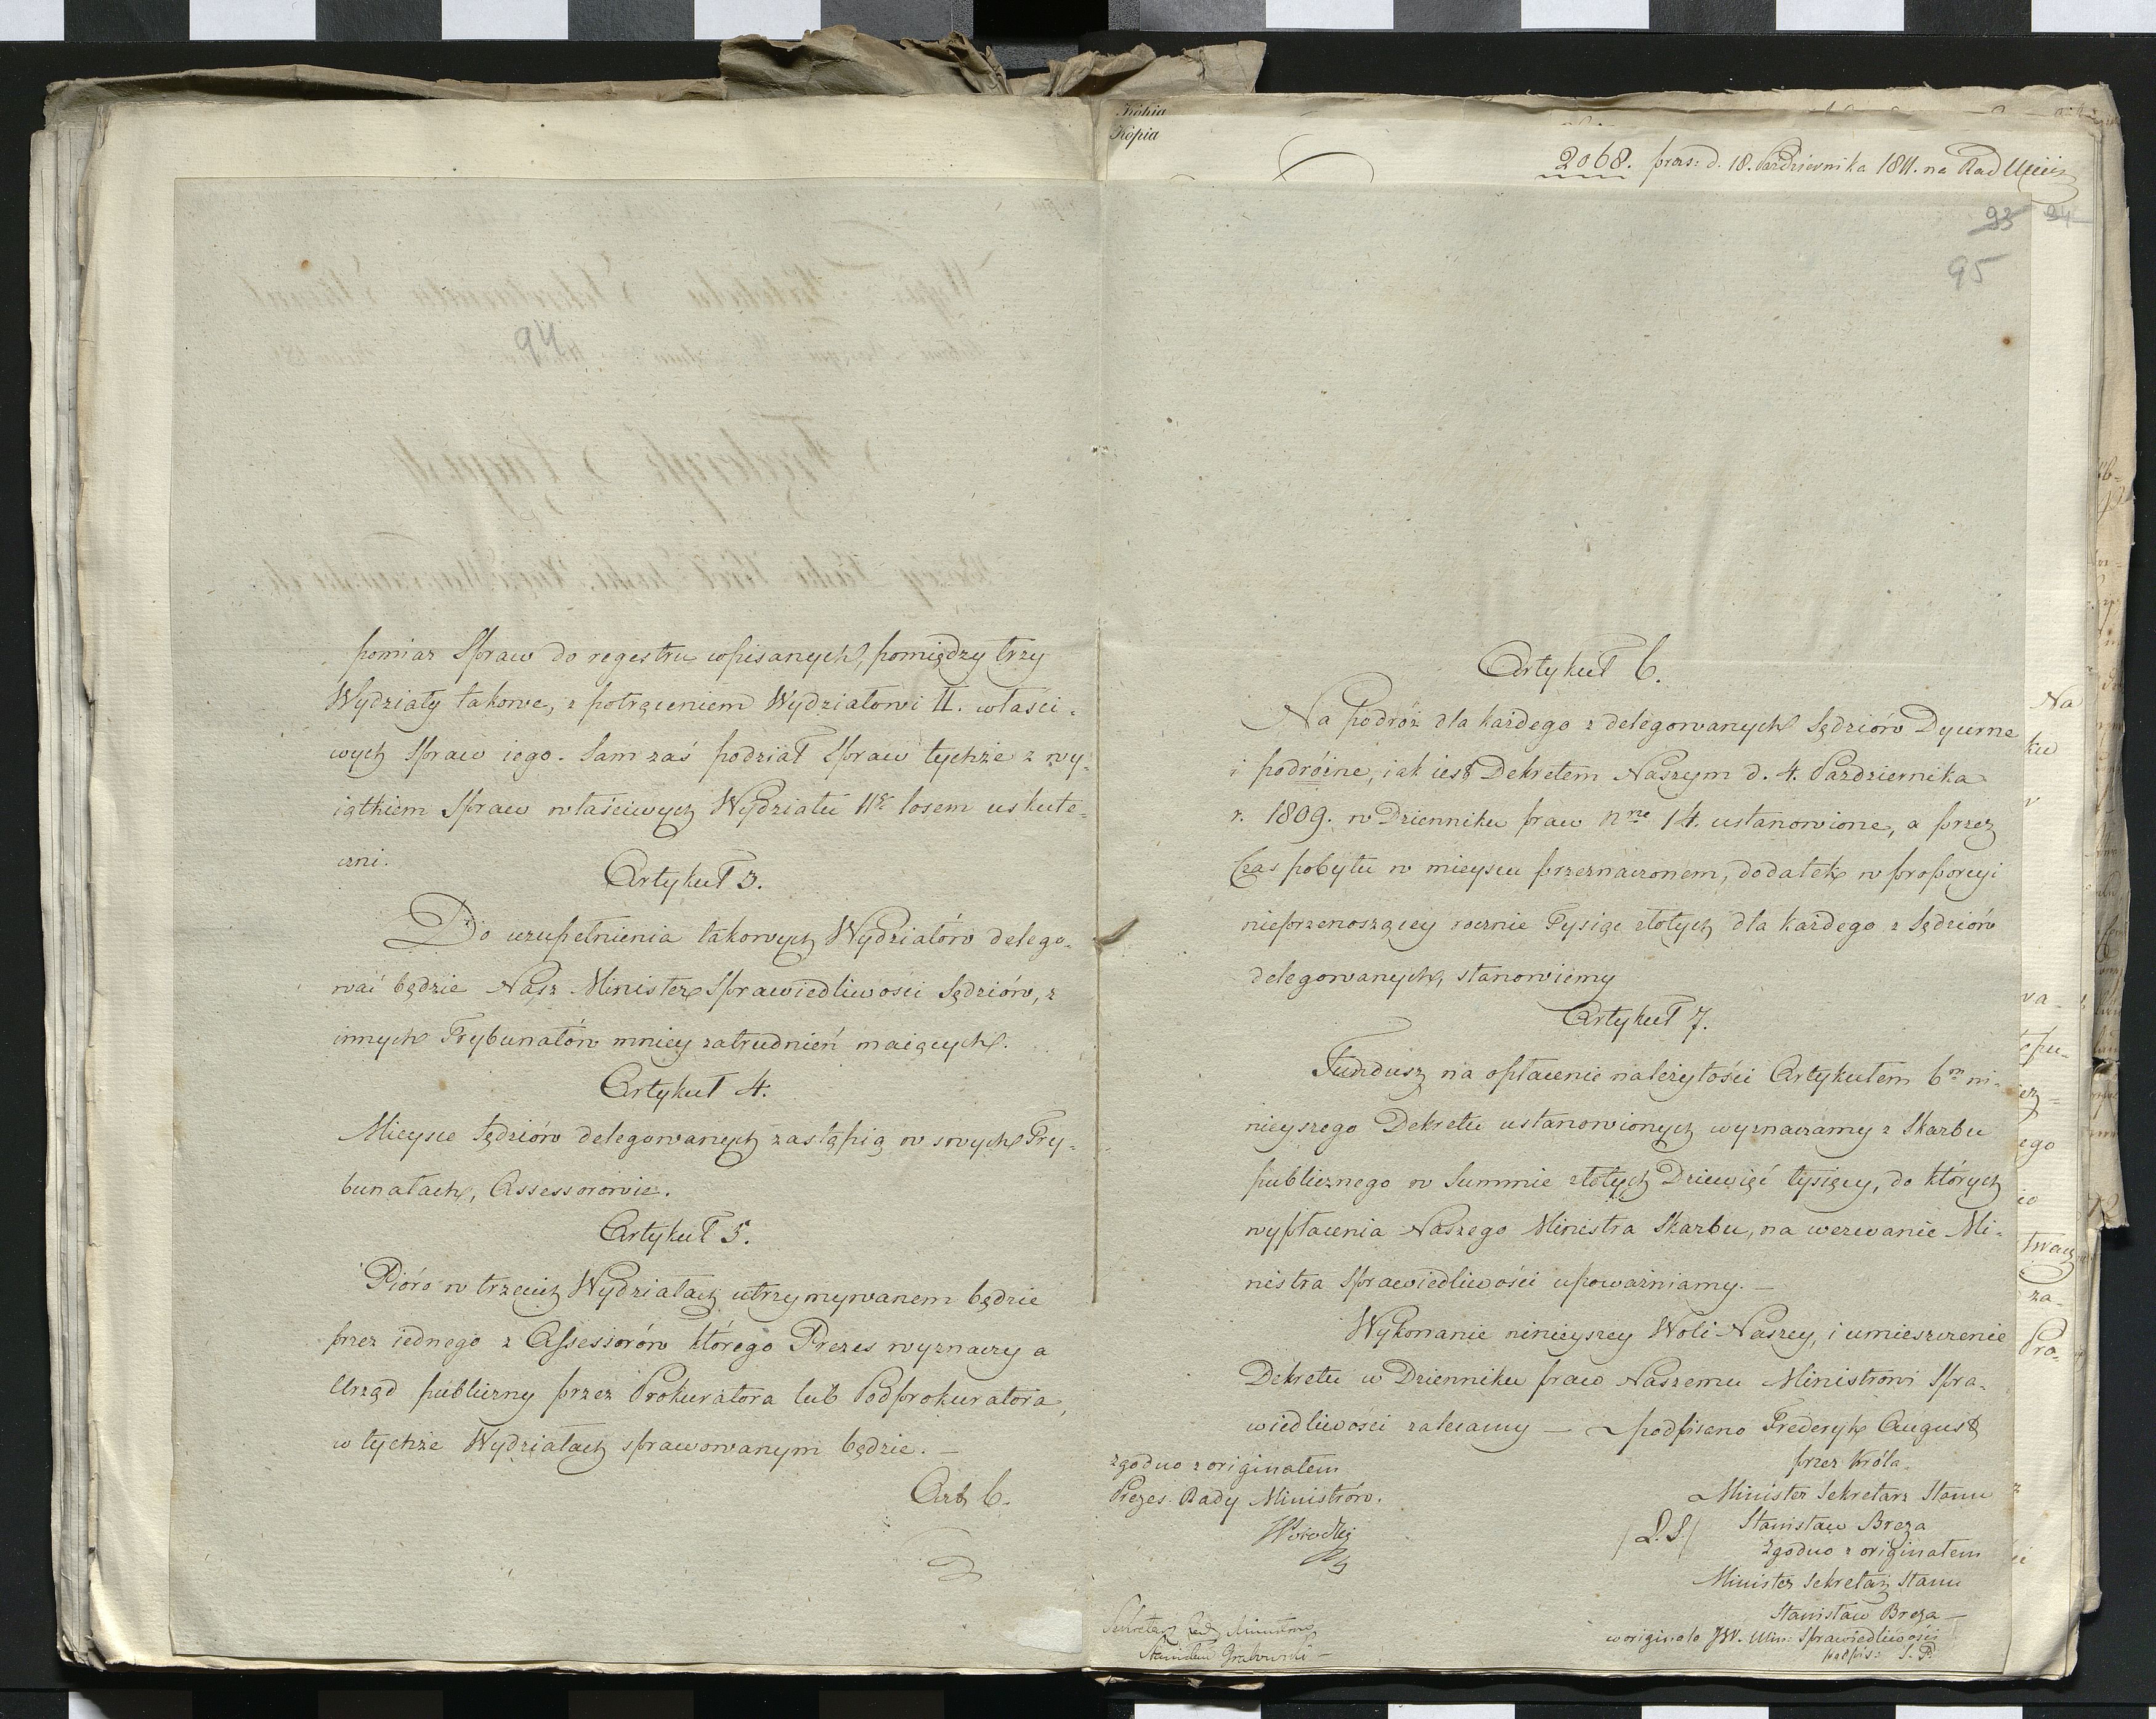 94
pomiar Spraw do regestru wpisanych, pomiędzy trzy
Wydziały takowe, z potrąceniem Wydziałowi II. właści-
wych Spraw iego. Sam zaś podział Spraw tychże z wy-
iątkiem Spraw właściwych Wydziału IIgo losem uskute-
czni.
Artykuł 3.
Do uzupełnienia takowych Wydziałów delego-
wać będzie Nasz Minister Sprawiedliwości Sędziów, z
innych Trybunałów mniey zatrudnień maiących.
Artykuł 4.
Mieysce Sędziów delegowanych zastąpią w swych Try-
bunałach, Assessorowie.
Artykuł 5.
Pióro w trzecich Wydziałach utrzymywanem będzie
przez iednego z Assessorów którego Prezes wyznaczy a
Urząd publiczny przez Prokuratora lub Podprokuratora,
w tychże Wydziałach sprawowanym będzie. —
Art 6.
Kopia
Kopia
2068. præs: d. 18. Października 1811. na Rad Minis
93 94
95
Artykuł 6.
Na podróż dla każdego z delegowanych Sędziów Dyurne
i podróżne, iak iest Dekretem Naszym d. 4. Pazdziernika
r. 1809. w Dzienniku praw Nre 14. ustanowione, a przez
Czas pobytu w mieyscu przeznaczonem, dodatek w proporcyi
nieprzenoszącey rocznie Tysiąc złotych dla każdego z Sędziów
delegowanych, stanowiemy
Artykuł 7.
Fundusz na opłacenie należytości Artykułem 6m ni-
nieyszego Dekretu ustanowionych wyznaczamy z Skarbu
publicznego w Summie złotych Dziewięć tysięcy, do których
wypłacenia Naszego Ministra Skarbu, na wezwanie Mi-
nistra Sprawiedliwości upoważniamy. —
Wykonanie ninieyszey Woli Naszey, i umieszczenie
Dekretu w Dzienniku praw Naszemu Ministrowi Spra-
wiedliwości zalecamy — podpisano Frederyk August
przez Króla
Minister Sekretarz Stanu
/L.S./ Stanisław Breza
Zgodno z originałem
Minister Sekretarz Stanu
Stanisław Breza —
w originale JW. Min: Sprawiedliwości
podpis: S. P.
zgodno z originałem
Prezes Rady Ministrów.
Sekretarz Rady Ministrów
Stanisław Grabowski —
Na